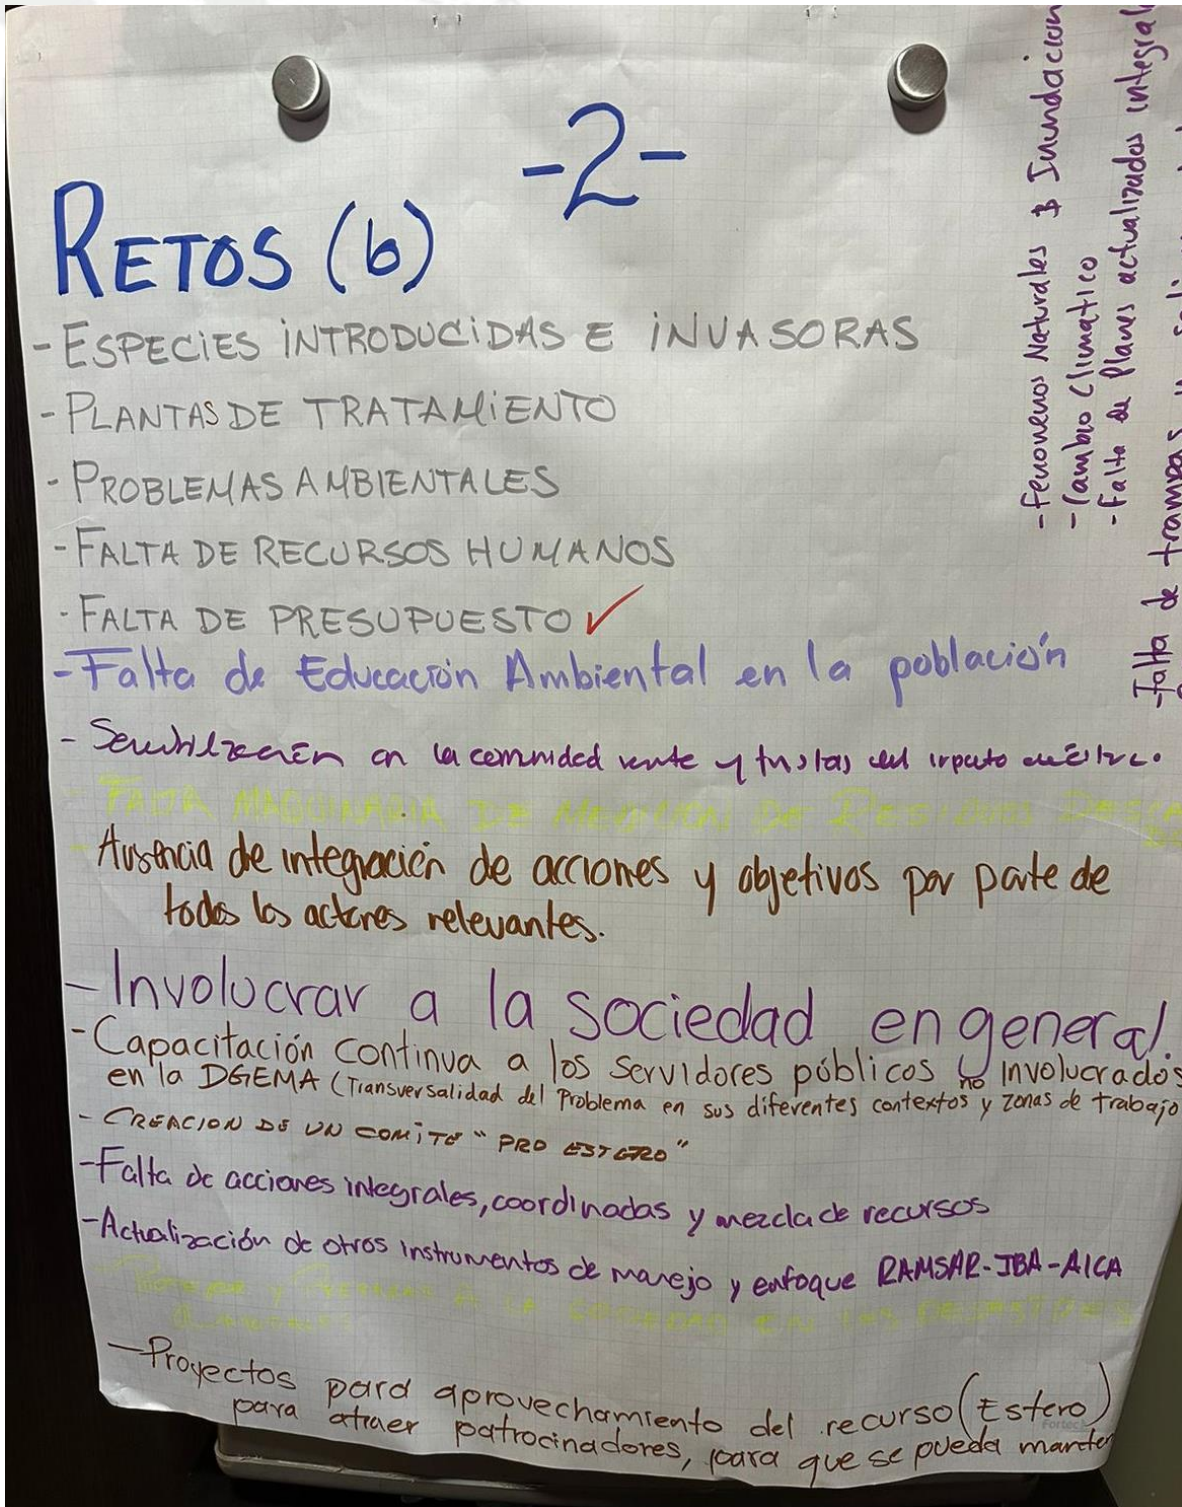 -2-
RETOS (b)
- ESPECIES INTRODUCIDAS E INVASORAS
- PLANTAS DE TRATAMIENTO
- PROBLEMAS AMBIENTALES
- FALTA DE RECURSOS HUMANOS
- FALTA DE PRESUPUESTO ✓
- Falta de Educación Ambiental en la población
- en la comunidad y del
- FALTA MAQUINARIA DE DE
Ausencia de integración de acciones y objetivos por parte de
todos los actores relevantes.
- Involucrar a la sociedad en general.
- Capacitación continua a los servidores públicos no involucrados
en la DGEMA (Transversalidad del Problema en sus diferentes contextos y zonas de trabajo
- CREACION DE UN COMITE "PRO ESTERO"
- Falta de acciones integrales, coordinadas y mezcla de recursos
- Actualización de otros instrumentos de manejo y enfoque RAMSAR-IBA-AICA
A LA SOCIEDAD EN LAS
- Proyectos para aprovechamiento del recurso (Estero)
para atraer patrocinadores, para que se pueda manten
- Fenomenos Naturales $ Inundacion
- Cambio Climatico
- Falta de Planes actualizados integral
- Falta de trampas